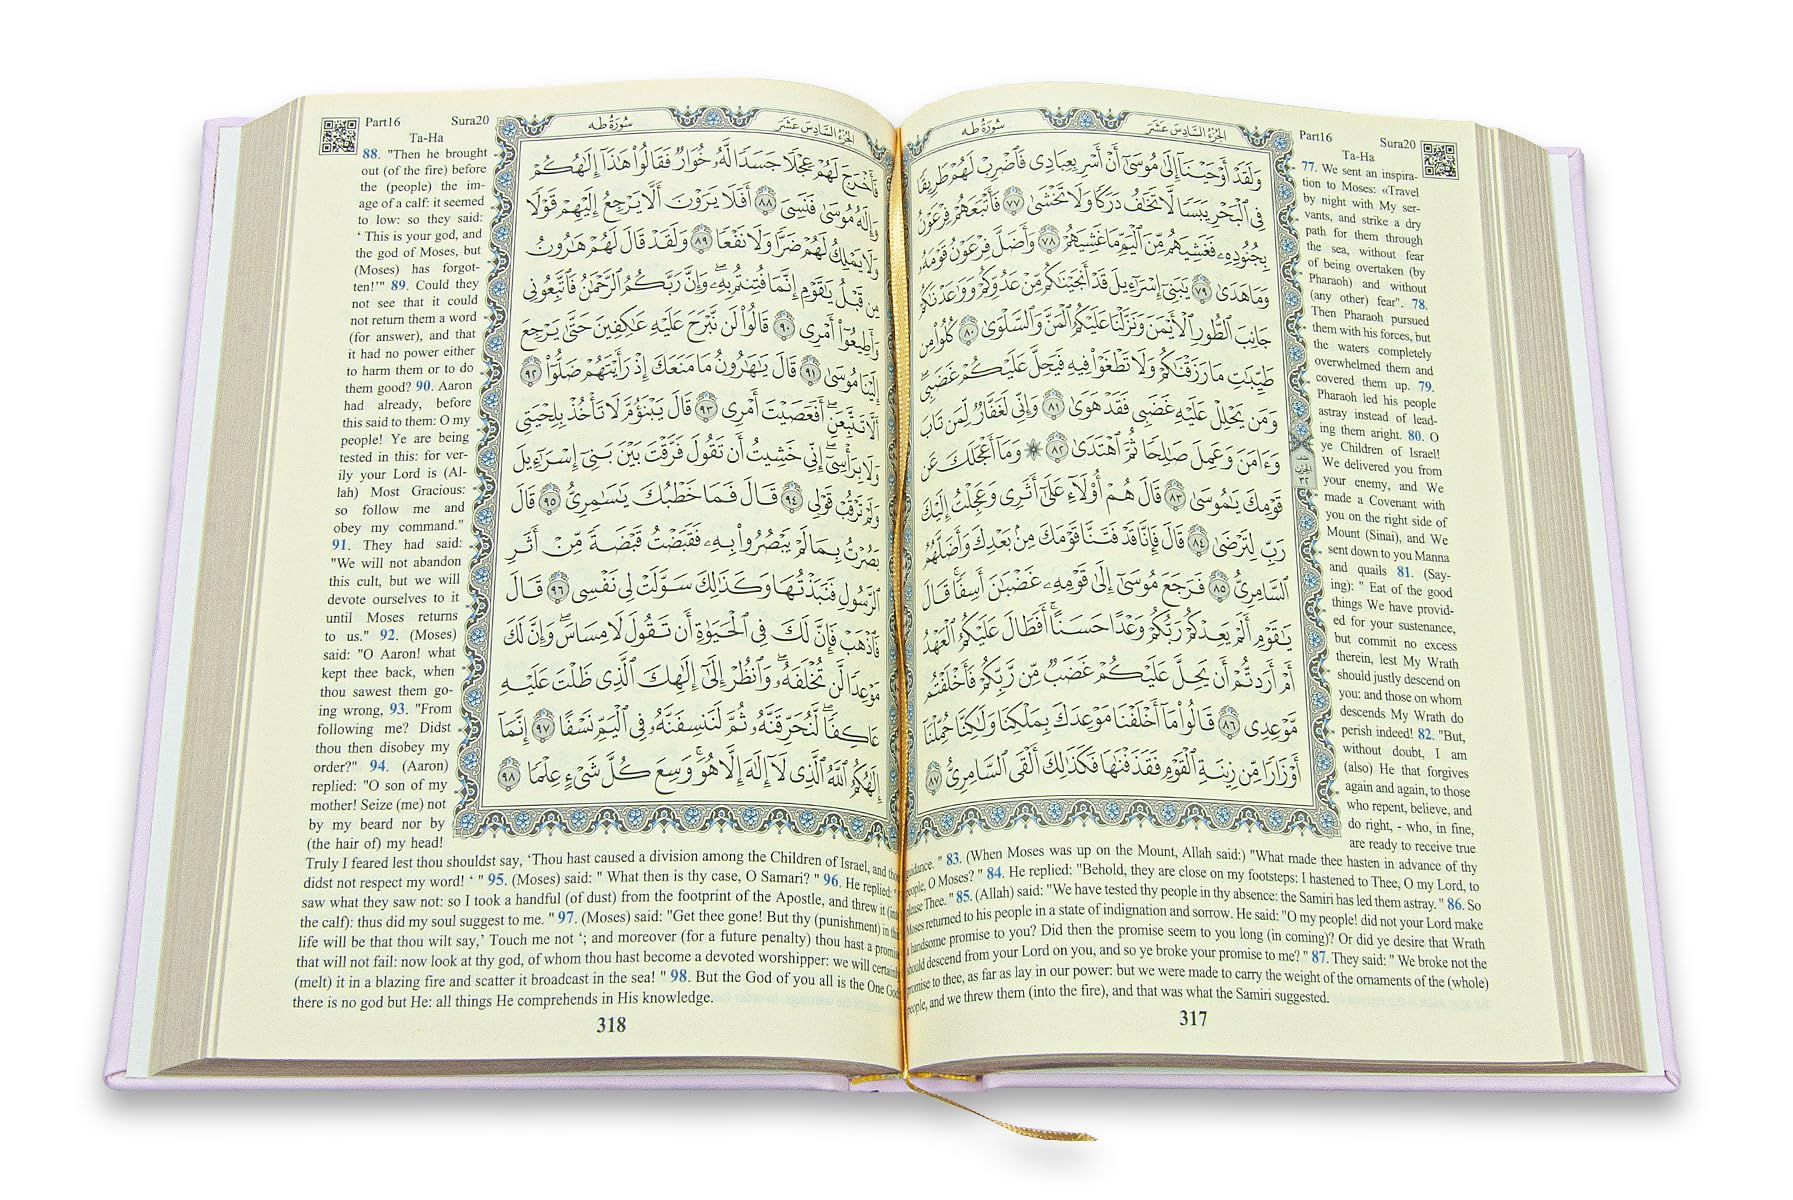 Part16 Sura20
Ta-Ha
الجُزءُ السَّادِسَ عَشَرَ سُورَةُ طه
وَلَقَدْ أَوْحَيْنَا إِلَىٰ مُوسَىٰ أَنْ أَسْرِ بِعِبَادِى فَاضْرِبْ لَهُمْ طَرِيقًا
فِى الْبَحْرِ يَبَسًا لَّا تَخَافُ دَرَكًا وَلَا تَخْشَىٰ ٧٧ فَأَتْبَعَهُمْ فِرْعَوْنُ
بِجُنُودِهِ فَغَشِيَهُم مِّنَ الْيَمِّ مَا غَشِيَهُمْ ٧٨ وَأَضَلَّ فِرْعَوْنُ قَوْمَهُ
وَمَا هَدَىٰ ٧٩ يَٰبَنِى إِسْرَٰءِيلَ قَدْ أَنجَيْنَٰكُم مِّنْ عَدُوِّكُمْ وَوَٰعَدْنَٰكُمْ
جَانِبَ الطُّورِ الْأَيْمَنَ وَنَزَّلْنَا عَلَيْكُمُ الْمَنَّ وَالسَّلْوَىٰ ٨٠ كُلُوا مِن
طَيِّبَٰتِ مَا رَزَقْنَٰكُمْ وَلَا تَطْغَوْا فِيهِ فَيَحِلَّ عَلَيْكُمْ غَضَبِى
وَمَن يَحْلِلْ عَلَيْهِ غَضَبِى فَقَدْ هَوَىٰ ٨١ وَإِنِّى لَغَفَّارٌ لِّمَن تَابَ
وَءَامَنَ وَعَمِلَ صَٰلِحًا ثُمَّ اهْتَدَىٰ ٨٢ ۞ وَمَا أَعْجَلَكَ عَن
قَوْمِكَ يَٰمُوسَىٰ ٨٣ قَالَ هُمْ أُولَاءِ عَلَىٰ أَثَرِى وَعَجِلْتُ إِلَيْكَ
رَبِّ لِتَرْضَىٰ ٨٤ قَالَ فَإِنَّا قَدْ فَتَنَّا قَوْمَكَ مِن بَعْدِكَ وَأَضَلَّهُمُ
السَّامِرِىُّ ٨٥ فَرَجَعَ مُوسَىٰ إِلَىٰ قَوْمِهِ غَضْبَٰنَ أَسِفًا قَالَ
يَٰقَوْمِ أَلَمْ يَعِدْكُمْ رَبُّكُمْ وَعْدًا حَسَنًا أَفَطَالَ عَلَيْكُمُ الْعَهْدُ
أَمْ أَرَدتُّمْ أَن يَحِلَّ عَلَيْكُمْ غَضَبٌ مِّن رَّبِّكُمْ فَأَخْلَفْتُم
مَّوْعِدِى ٨٦ قَالُوا مَا أَخْلَفْنَا مَوْعِدَكَ بِمَلْكِنَا وَلَٰكِنَّا حُمِّلْنَا
أَوْزَارًا مِّن زِينَةِ الْقَوْمِ فَقَذَفْنَٰهَا فَكَذَٰلِكَ أَلْقَى السَّامِرِىُّ ٨٧
77. We sent an inspira-
tion to Moses: «Travel
by night with My ser-
vants, and strike a dry
path for them through
the sea, without fear
of being overtaken (by
Pharaoh) and without
(any other) fear". 78.
Then Pharaoh pursued
them with his forces, but
the waters completely
overwhelmed them and
covered them up. 79.
Pharaoh led his people
astray instead of lead-
ing them aright. 80. O
ye Children of Israel!
We delivered you from
your enemy, and We
made a Covenant with
you on the right side of
Mount (Sinai), and We
sent down to you Manna
and quails 81. (Say-
ing): " Eat of the good
things We have provid-
ed for your sustenance,
but commit no excess
therein, lest My Wrath
should justly descend on
you: and those on whom
descends My Wrath do
perish indeed! 82. "But,
without doubt, I am
(also) He that forgives
again and again, to those
who repent, believe, and
do right, - who, in fine,
are ready to receive true
guidance. " 83. (When Moses was up on the Mount, Allah said:) "What made thee hasten in advance of thy
people, O Moses? " 84. He replied: "Behold, they are close on my footsteps: I hastened to Thee, O my Lord, to
please Thee. " 85. (Allah) said: "We have tested thy people in thy absence: the Samiri has led them astray. " 86. So
Moses returned to his people in a state of indignation and sorrow. He said: "O my people! did not your Lord make
a handsome promise to you? Did then the promise seem to you long (in coming)? Or did ye desire that Wrath
should descend from your Lord on you, and so ye broke your promise to me? " 87. They said: " We broke not the
promise to thee, as far as lay in our power: but we were made to carry the weight of the ornaments of the (whole)
people, and we threw them (into the fire), and that was what the Samiri suggested.
317
Part16 Sura20
Ta-Ha
الجُزءُ السَّادِسَ عَشَرَ سُورَةُ طه
فَأَخْرَجَ لَهُمْ عِجْلًا جَسَدًا لَّهُ خُوَارٌ فَقَالُوا هَٰذَا إِلَٰهُكُمْ
وَإِلَٰهُ مُوسَىٰ فَنَسِىَ ٨٨ أَفَلَا يَرَوْنَ أَلَّا يَرْجِعُ إِلَيْهِمْ قَوْلًا
وَلَا يَمْلِكُ لَهُمْ ضَرًّا وَلَا نَفْعًا ٨٩ وَلَقَدْ قَالَ لَهُمْ هَٰرُونُ
مِن قَبْلُ يَٰقَوْمِ إِنَّمَا فُتِنتُم بِهِ وَإِنَّ رَبَّكُمُ الرَّحْمَٰنُ فَاتَّبِعُونِى
وَأَطِيعُوا أَمْرِى ٩٠ قَالُوا لَن نَّبْرَحَ عَلَيْهِ عَٰكِفِينَ حَتَّىٰ يَرْجِعَ
إِلَيْنَا مُوسَىٰ ٩١ قَالَ يَٰهَٰرُونُ مَا مَنَعَكَ إِذْ رَأَيْتَهُمْ ضَلُّوا ٩٢
أَلَّا تَتَّبِعَنِ أَفَعَصَيْتَ أَمْرِى ٩٣ قَالَ يَبْنَؤُمَّ لَا تَأْخُذْ بِلِحْيَتِى
وَلَا بِرَأْسِى إِنِّى خَشِيتُ أَن تَقُولَ فَرَّقْتَ بَيْنَ بَنِى إِسْرَٰءِيلَ
وَلَمْ تَرْقُبْ قَوْلِى ٩٤ قَالَ فَمَا خَطْبُكَ يَٰسَٰمِرِىُّ ٩٥ قَالَ
بَصُرْتُ بِمَا لَمْ يَبْصُرُوا بِهِ فَقَبَضْتُ قَبْضَةً مِّنْ أَثَرِ
الرَّسُولِ فَنَبَذْتُهَا وَكَذَٰلِكَ سَوَّلَتْ لِى نَفْسِى ٩٦ قَالَ
فَاذْهَبْ فَإِنَّ لَكَ فِى الْحَيَوٰةِ أَن تَقُولَ لَا مِسَاسَ وَإِنَّ لَكَ
مَوْعِدًا لَّن تُخْلَفَهُ وَانظُرْ إِلَىٰ إِلَٰهِكَ الَّذِى ظَلْتَ عَلَيْهِ
عَاكِفًا لَّنُحَرِّقَنَّهُ ثُمَّ لَنَنسِفَنَّهُ فِى الْيَمِّ نَسْفًا ٩٧ إِنَّمَا
إِلَٰهُكُمُ اللَّهُ الَّذِى لَا إِلَٰهَ إِلَّا هُوَ وَسِعَ كُلَّ شَىْءٍ عِلْمًا ٩٨
88. "Then he brought
out (of the fire) before
the (people) the im-
age of a calf: it seemed
to low: so they said:
‘ This is your god, and
the god of Moses, but
(Moses) has forgot-
ten!’" 89. Could they
not see that it could
not return them a word
(for answer), and that
it had no power either
to harm them or to do
them good? 90. Aaron
had already, before
this said to them: O my
people! Ye are being
tested in this: for ver-
ily your Lord is (Al-
lah) Most Gracious:
so follow me and
obey my command."
91. They had said:
"We will not abandon
this cult, but we will
devote ourselves to it
until Moses returns
to us." 92. (Moses)
said: "O Aaron! what
kept thee back, when
thou sawest them go-
ing wrong, 93. "From
following me? Didst
thou then disobey my
order?" 94. (Aaron)
replied: "O son of my
mother! Seize (me) not
by my beard nor by
(the hair of) my head!
Truly I feared lest thou shouldst say, ‘Thou hast caused a division among the Children of Israel, and
didst not respect my word! ‘ " 95. (Moses) said: " What then is thy case, O Samari? " 96. He replied: "
saw what they saw not: so I took a handful (of dust) from the footprint of the Apostle, and threw it
the calf): thus did my soul suggest to me. " 97. (Moses) said: "Get thee gone! But thy (punishment) in
life will be that thou wilt say,’ Touch me not ‘; and moreover (for a future penalty) thou hast a
that will not fail: now look at thy god, of whom thou hast become a devoted worshipper: we will
(melt) it in a blazing fire and scatter it broadcast in the sea! " 98. But the God of you all is the One
there is no god but He: all things He comprehends in His knowledge.
318